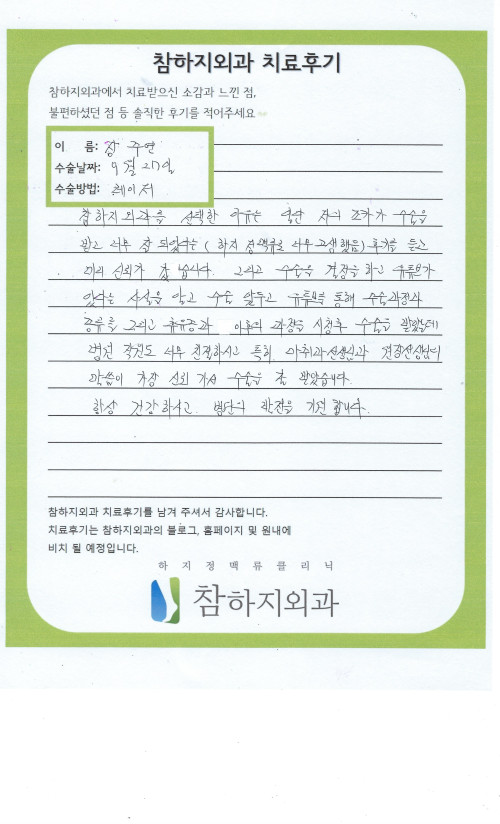 참하지외과 치료후기
참하지외과에서 치료받으신 소감과 느낀 점,
불편하셨던 점 등 솔직한 후기를 적어주세요
이 름: 장 주연
수술날짜: 9월 27일
수술방법: 레이저
참하지외과를 선택한 이유는 일단 저의 조카가 수술을
받고 너무 잘 되었다는 ( 하지 정맥류로 너무 고생했음) 후기를 듣고
신뢰가 갔습니다. 그리고 수술을 결정을 하고 유튜브가
있다는 사실을 알고 수술 앞두고 유튜브를 통해 수술과정과
종류를 그리고 후유증과 이후의 과정을 시청후 수술을 받았는데
병원 직원도 너무 친절하시고 특히 마취과선생님과 원장선생님의
말씀이 가장 신뢰 가서 수술을 잘 받았습니다.
항상 건강하시고. 병원의 발전을 기원 합니다.
참하지외과 치료후기를 남겨 주셔서 감사합니다.
치료후기는 참하지외과의 블로그, 홈페이지 및 원내에
비치 될 예정입니다.
하지정맥류클리닉
참하지외과